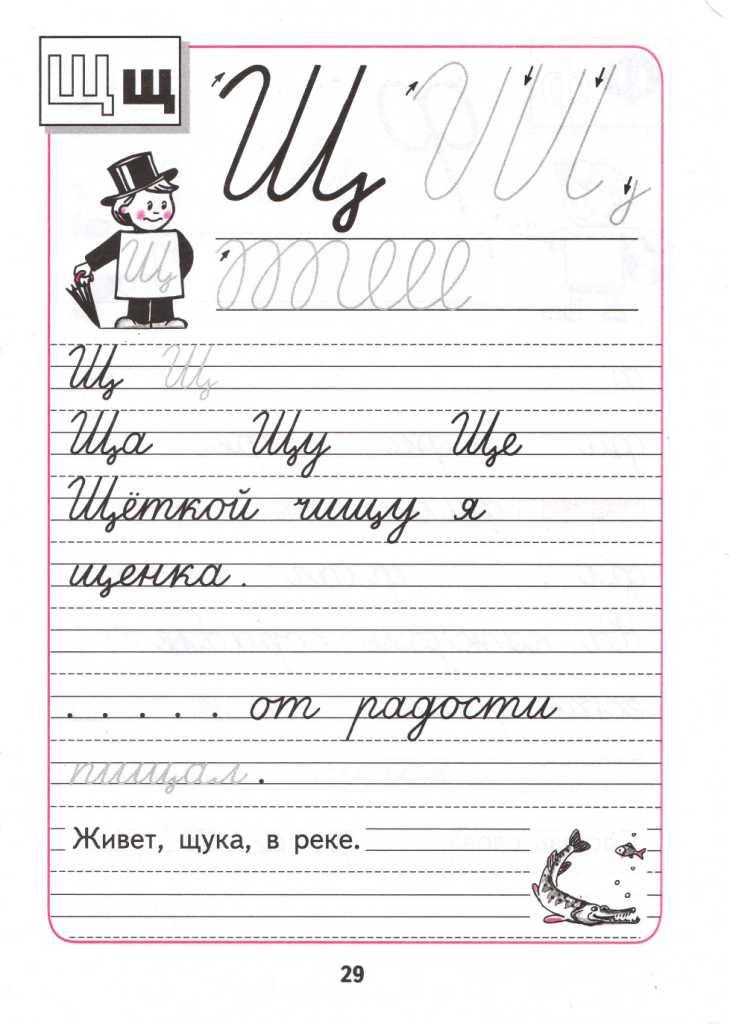 Щ щ
Щ Щ
Щ
Щ Щ
Ща Щу Ще
Щёткой чищу я
щенка.
. . . . . от радости
пищал.
Живет, щука, в реке.
29